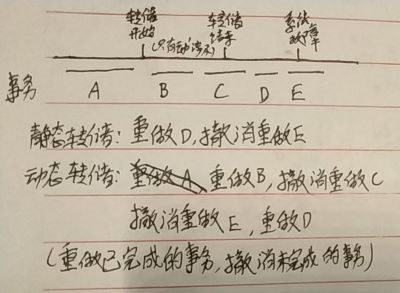 转储开始 转储结束 系统故障
(只有动态不)
事务 A B C D E
静态转储：重做D，撤消重做E
动态转储：重做A 重做B，撤消重做C
撤消重做E，重做D
(重做已完成的事务，撤消未完成的事务)